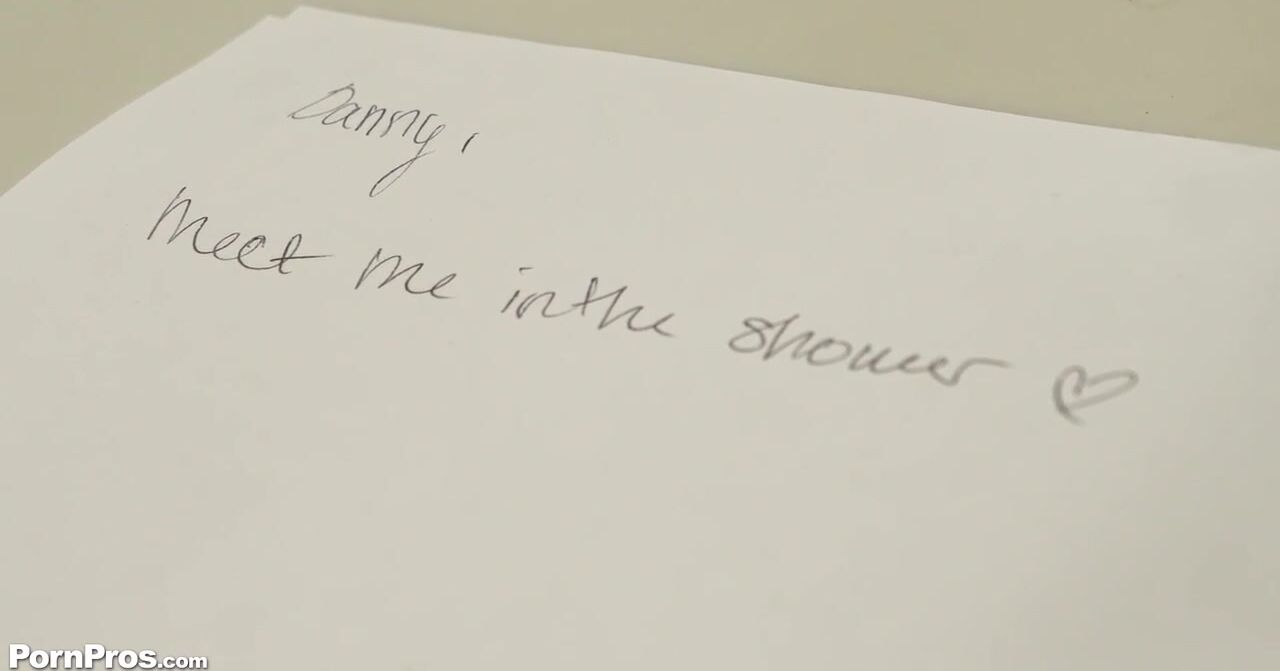 Danny,
Meet me in the shower ♡
PornPros.com